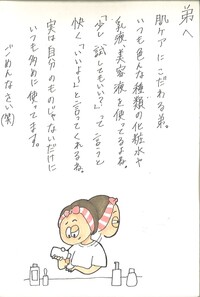 弟へ
肌ケアにこだわる弟。
いつも色んな種類の化粧水や
乳液、美容液を使ってるよね。
「少し試してもいい？」って言うと
快く「いいよ〜」と言ってくれるね。
実は自分のものじゃないだけに
いつも多めに使ってます。
ごめんなさい(笑)